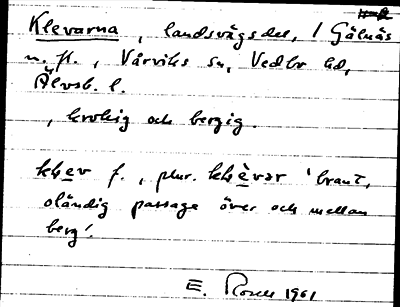 Klevarna, landsvägsdel, / Gälnäs
m. fl., Vårviks sn, Vedbo hd,
Älvsb. l.
, krokig och bergig.
klev f., plur. klèvar 'brant,
oländig passage över och mellan
berg'.
E. Rosell 1961